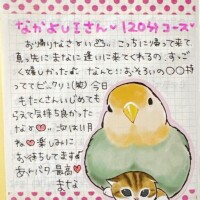 なかよしIさん♥120分コース♥
お帰りなさい
こっちに帰って来て
真っ先に きなに逢いに来てくれるの、すっご
く嬉しかったよ
なんと!!おそろいの〇〇持
ってビックリ(笑)今日
もたくさんいじめても
らえて気持ち良かった
なぁ♥
次は11月
かね♥楽しみに
お待ちしてます
最高♥
きな